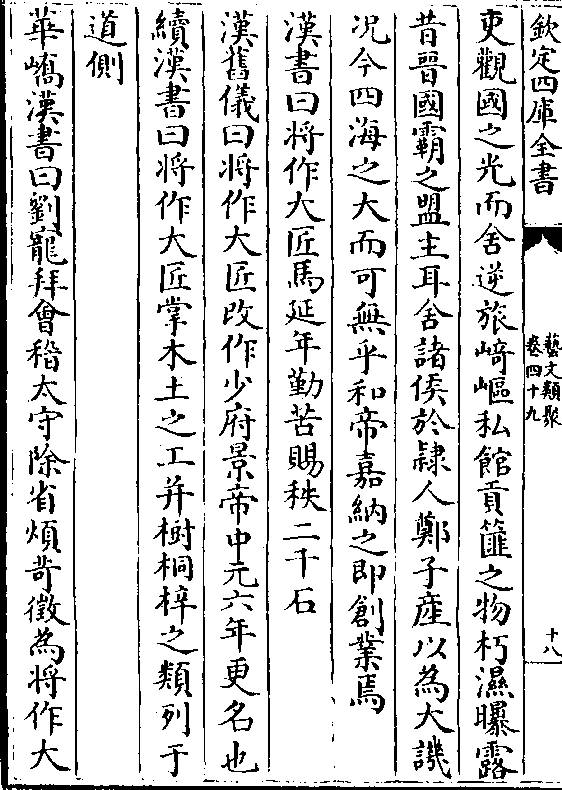 欽定四庫全書
藝文類聚
卷四十九
十八
吏觀國之光而舍逆旅﨑嶇私館貢篚之物朽濕曝露
昔晉國霸之盟主耳舍諸侯於隷人鄭子産以為大譏
况今四海之大而可無乎和帝嘉納之即創業焉
漢書曰将作大匠馬延年勤苦賜秩二千石
漢舊儀曰将作大匠改作少府景帝中元六年更名也
續漢書曰将作大匠掌木土之工并樹桐梓之類列于
道側
華嶠漢書曰劉寵拜會稽太守除省煩苛徵為将作大